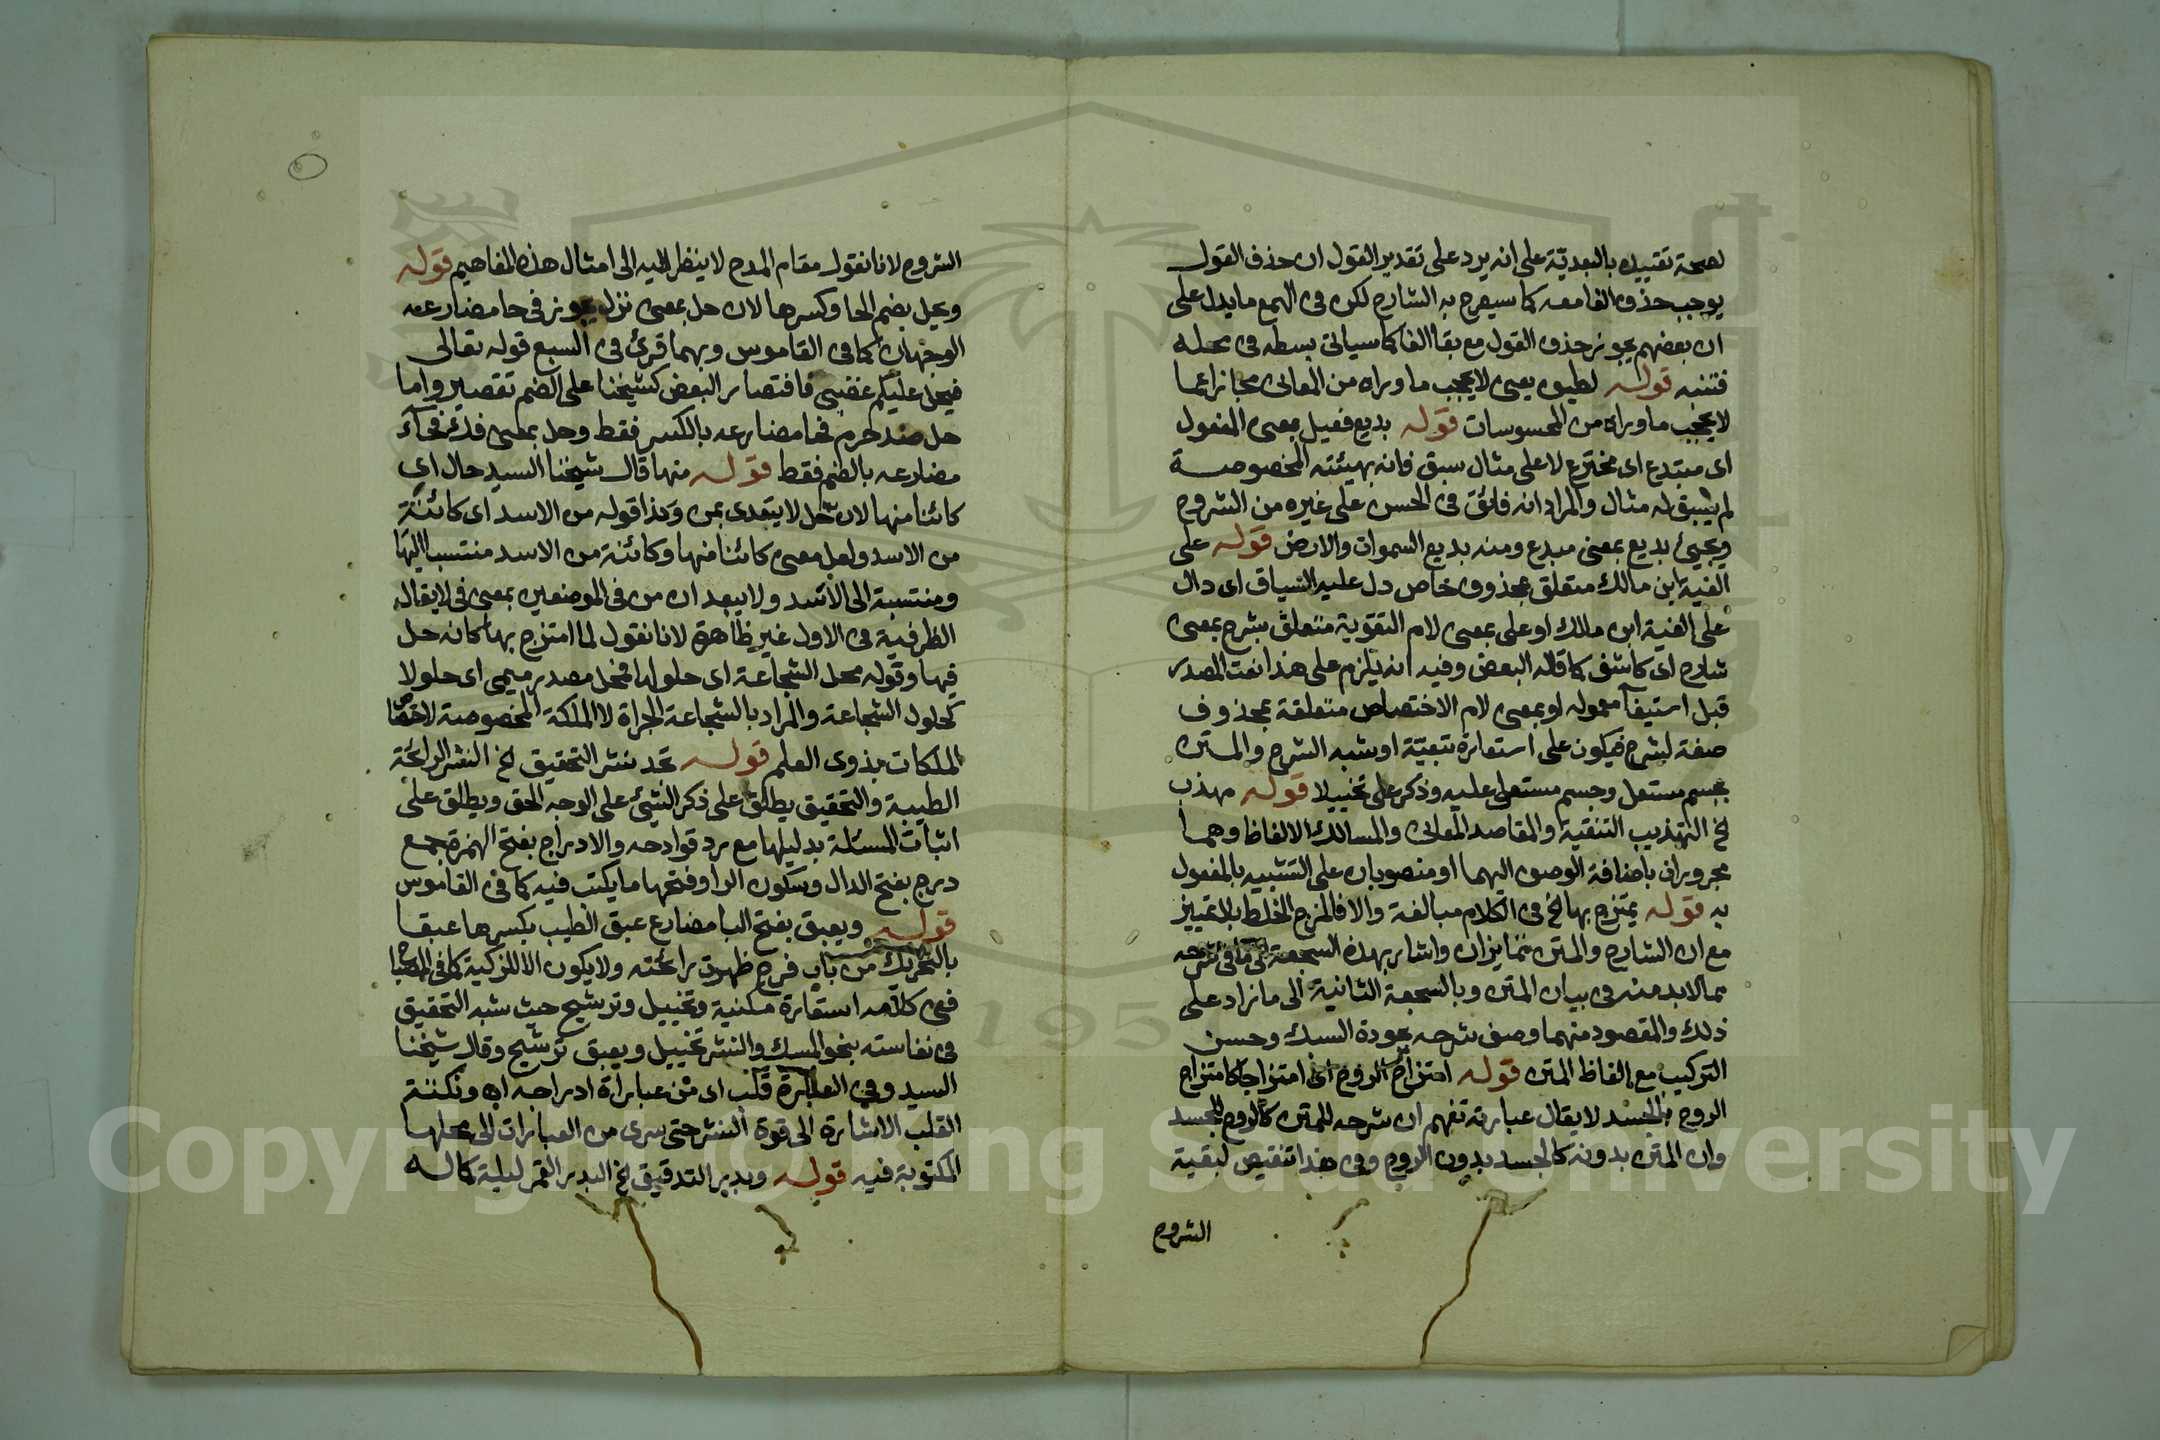 لصحة تقييده بالبعدية على انه يرد على تقدير القول ان حذف القول
يوجب حذف الفا معه كما سيصرح به الشارح لكن في الهمع ما يدل على
ان بعضهم يجوز حذف القول مع بقا الفا كما سياتي بسطه في محله
فتنبه قوله لطيف يعني لا يحجب ما وراه من المعاني مجازا عما
لا يحجب ما وراه من المحسوسات قوله بديع فعيل بمعنى المفعول
اى مبتدع اى مخترع لا على مثال سبق فانه بهيئته المخصوصة
لم يسبق له مثال والمراد انه فائق في الحسن على غيره من الشروح
ويجيئ بديع بمعنى مبدع ومنه بديع السموات والارض قوله على
الفية ابن مالك متعلق بمحذوف خاص دل عليه السياق اى دال
على الفية ابن مالك او على بمعنى لام التقوية متعلق بشرح بمعنى
شارح اى كاشف كما قاله البعض وفيه انه يلزم على هذا نعت المصدر
قبل استيفآ معموله او بمعنى لام الاختصاص متعلقة بمحذوف
صفة لشرح فيكون على استعارة تبعيّة او شبه الشرح والمتن
بجسم مستعل وجسم مستعلى عليه وذكر على تخييلا قوله مهذب
لخ التهذيب التنقية والمقاصد المعاني والمسالك الالفاظ وهما
مجروران باضافة الوصف اليهما او منصوبان على التشبيه بالمفعول
به قوله يمتزج بها لخ في الكلام مبالغة والا فالمزج الخلط بلا تمييز
مع ان الشارح والمتن متمايزان واشار بهذه السجعة الى ما في شرحه
مما لابد منه في بيان المتن وبالسجعة الثانية الى ما زاد على
ذلك والمقصود منهما وصف شرحه بجودة السبك وحسن
التركيب مع الفاظ المتن قوله امتزاج الروح اى امتزاجا كامتزاج
الروح بالجسد لا يقال عبارته تفهم ان شرحه للمتن كالروح للجسد
وان المتن بدونه كالجسد بدون الروح وفي هذا تنقيص لبقية
الشروح
الشروح لانا نقول مقام المدح لا ينظر فيه الى امثال هذه المفاهيم قوله
ويحل بضم الحا وكسرها لان حل بمعنى نزل يجوز في حا مضارعه
الوجهان كما في القاموس وبهما قرئ في السبع قوله تعالى
فيحل عليكم غضبي فاقتصار البعض كشيخنا على الضم تقصير واما
حل ضد حرم فحا مضارعه بالكسر فقط وحل بمعنى فك فحآء
مضارعه بالضم فقط قوله منها قال شيخنا السيد حال اي
كائنا منها لان حل لا يتعدى بمن وكذا قوله من الاسد اى كائنة
من الاسد ولعل معنى كائنا منها وكائنة من الاسد منتسبا اليها
ومنتسبة الى الاسد ولا يبعد ان من في الموضعين بمعنى في لا يقال
الظرفية في الاول غير ظاهرة لانا نقول لما امتزج بها كانه حل
فيها وقوله محل الشجاعة اى حلولها فمحل مصدر ميمي اى حلولا
كحلول الشجاعة والمراد بالشجاعة الجراة لا الملكة المخصوصة لاختصاص
الملكات بذوى العلم قوله تجد نشر التحقيق لخ النشر الرائحة
الطيبة والتحقيق يطلق على ذكر الشئ على الوجه الحق ويطلق على
اثبات المسئلة بدليلها مع رد قوادحه والادراج بفتح الهمزة جمع
درج بفتح الدال وسكون الرا وفتحها ما يكتب فيه كما في القاموس
قوله ويعبق بفتح البا مضارع عبق الطيب بكسرها عبقا
بالتحريك من باب فرح ظهرت رائحته ولا يكون الا للزكية كما في المصباح
ففي كلامه استعارة مكنية وتخييل وترشيح حيث شبه التحقيق
في نفاسته بنحو المسك والنشر تخييل ويعبق ترشيح وقال شيخنا
السيد وفي العبارة قلب اى من عباراة ادراجه اه ونكتة
القلب الاشارة الى قوة النشر حتى سرى من العبارات الى محلها
المكتوبة فيه قوله وبدر التدقيق لخ البدر القمر ليلة كماله
Copyright © King Saud University